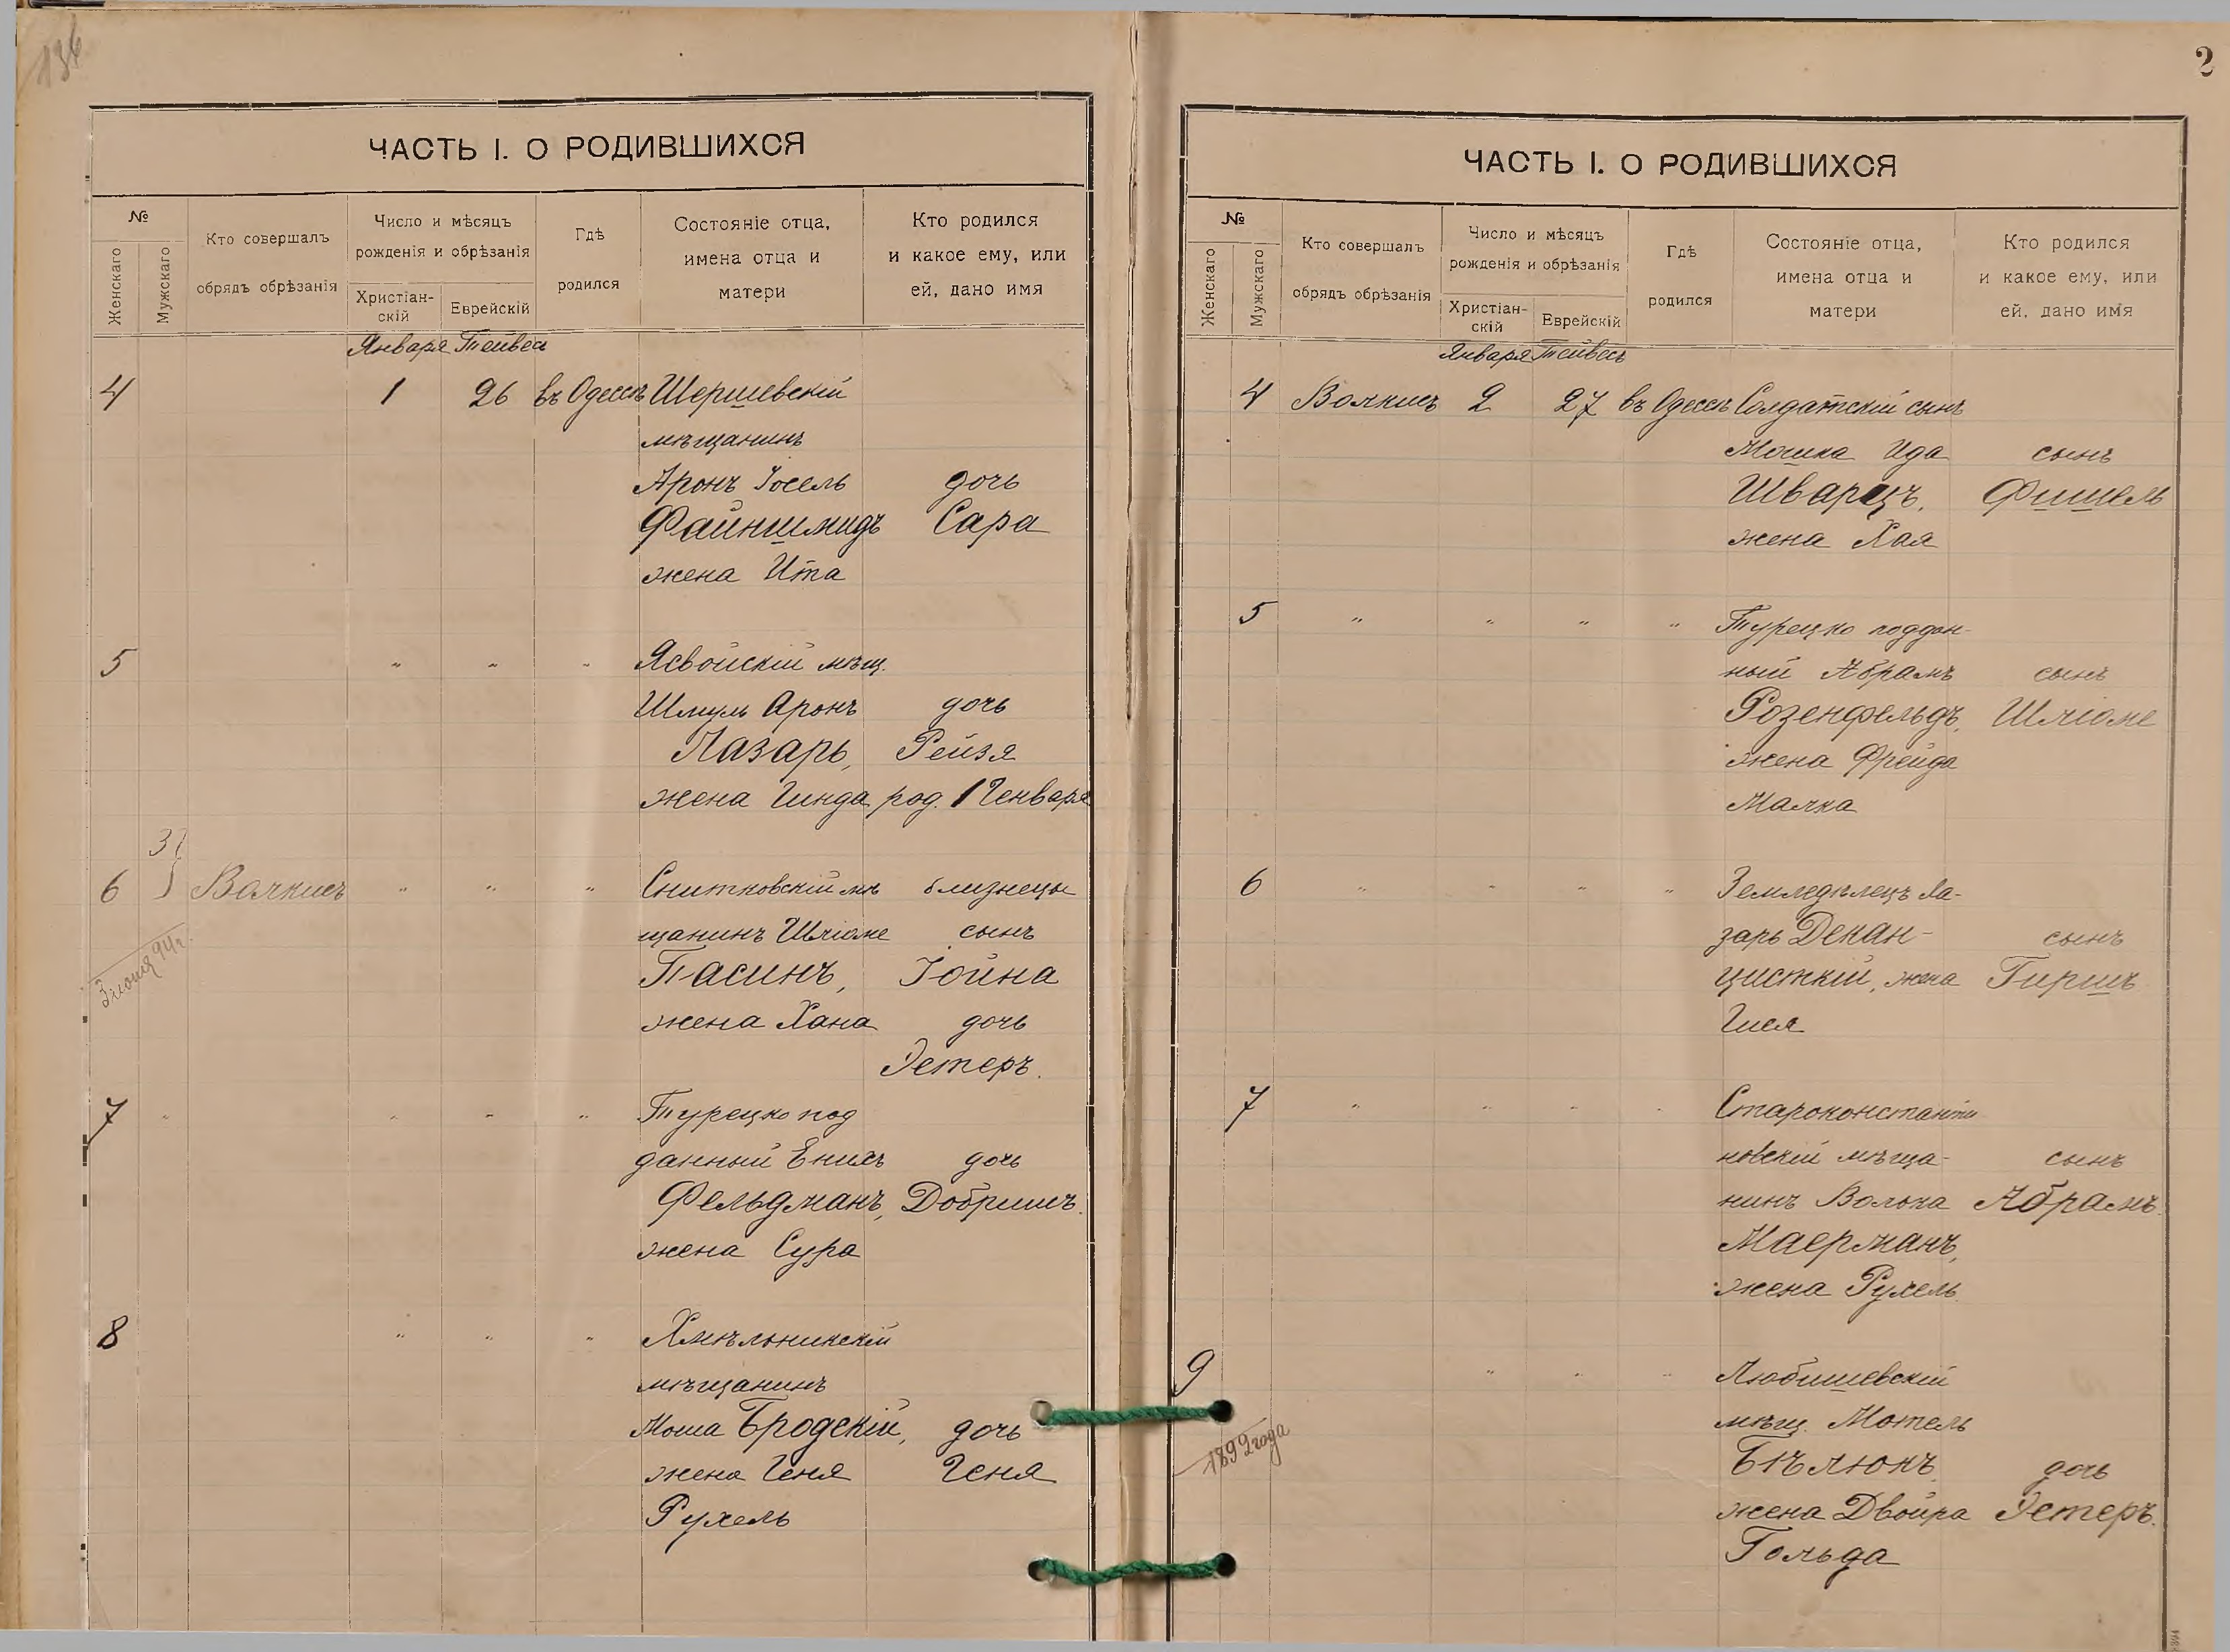 136
ЧАСТЬ I. О РОДИВШИХСЯ
№
Женскаго
Мужскаго
Кто совершалъ
обрядъ обрѣзанія
Число и мѣсяцъ
рожденія и обрѣзанія
Христіан-
скій
Еврейскій
Гдѣ
родился
Состояніе отца,
имена отца и
матери
Кто родился
и какое ему, или
ей, дано имя
Января Тейвесъ
4 1 26 въ Одессѣ Шершевскій
мѣщанинъ
Аронъ Іосель дочь
Файншмидъ Сара
жена Ита
5 " " " Ясвойскій мѣщ.
Шмуль Аронъ дочь
Лазарь, Рейзя
жена Гинда род. 1 Генваря
3
6 Волкисъ " " " Снитковскій мѣ близнецы
щанинъ Шліоме сынъ
Пасинъ, Іойна
жена Хана дочь
Эстеръ.
7 " " " " Турецко под
данный Енихъ дочь
Фельдманъ, Добришъ.
жена Сура
8 " " " Хмѣльникскій
мѣщанинъ
Моша Бродскій, дочь
жена Геня Геня
Рухель
2
ЧАСТЬ I. О РОДИВШИХСЯ
№
Женскаго
Мужскаго
Кто совершалъ
обрядъ обрѣзанія
Число и мѣсяцъ
рожденія и обрѣзанія
Христіан-
скій
Еврейскій
Гдѣ
родился
Состояніе отца,
имена отца и
матери
Кто родился
и какое ему, или
ей, дано имя
Января Тейвесъ
4 Волкисъ 2 27 въ Одессѣ Солдатскій сынъ
Мошка Ида сынъ
Шварцъ, Фишель
жена Хая
5 " " " " Турецко поддан-
ный Абрамъ сынъ
Розенфельдъ, Шліоме
жена Фрейда
Малка
6 " " " " Земледѣлецъ Ла-
зарь Декан- сынъ
цисткій, жена Гиршъ
Гися
7 " " " " Староконстанти
новскій мѣща- сынъ
нинъ Волька Абрамъ.
Маерманъ,
жена Рухель
9 " " " Любишевскій
мѣщ. Мотель
1892 года
Бѣлюкъ, дочь
жена Двойра Эстеръ.
Гольда